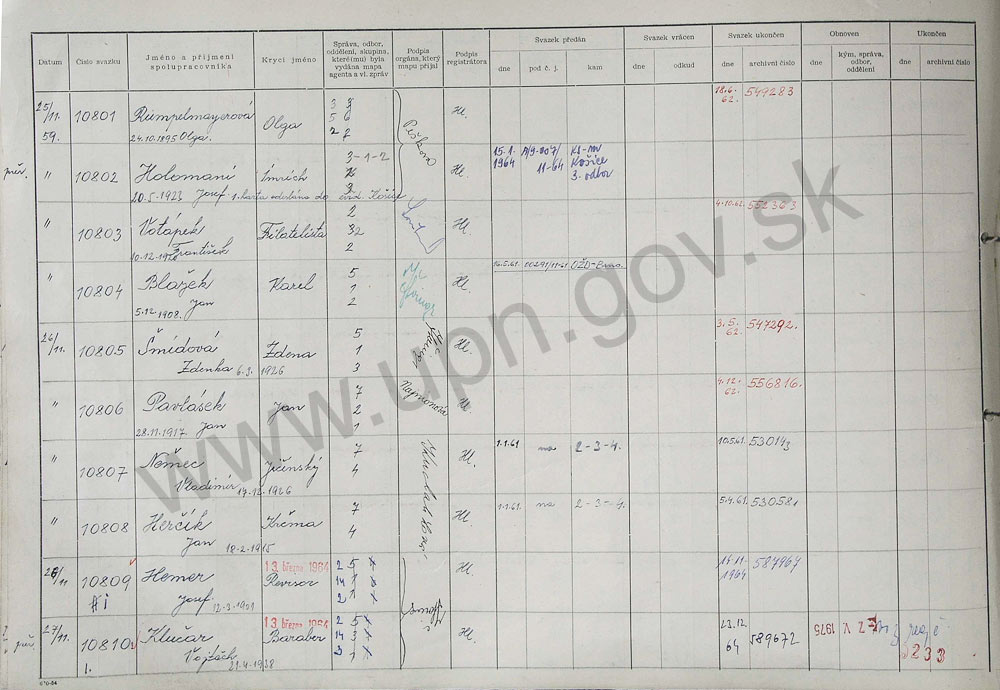 Datum
Číslo svazku
Jméno a příjmení
spolupracovníka
Krycí jméno
Správa, odbor,
oddělení, skupina,
které(mu) byla
vydána mapa
agenta a vl. zpráv
Podpis
orgána, který
mapu přijal
Podpis
registrátora
Svazek předán
dne
pod č. j.
kam
Svazek vrácen
dne
odkud
Svazek ukončen
dne
archivní číslo
Obnoven
dne
kým, správa,
odbor,
oddělení
Ukončen
dne
archivní číslo
25/11. 59. 10801 Rümpelmayerová Olga Hl. 18.6. 62. 549283
24.10.1895 Olga.
" 10802 Holomani Imrich 3-1-2 Hl. 15.1. 1964 A/9-007/ 11-64 KS-MV Košice 3. odbor
20.5.1923 Josef
" 10803 Votápek Filatelista 2 32 2 Hl. 4.10.62. 552363
František
" 10804 Blažek Karel 5 1 2 Hl. 00291/11-61
5.12.1908. Jan
26/11. 10805 Šmídová Zdena 5 1 3 Hl. 3.5. 62. 547292.
Zdenka 6.3. 1926
" 10806 Pavlásek Jan 7 2 1 Najmonová Hl. 4.12. 62. 556816.
28.11.1917. Jan
" 10807 Němec Jičínský 7 4 Hl. 1.1.61 na 2-3-4. 10.5.61. 530143
Vladimír 14.12.1926
" 10808 Herčík Krčma 7 4 Hl. 1.1.61 na 2-3-4. 5.4.61. 530581
Jan 18-2-1915
26/11 10809 Hemer 13. března 1964 Revisor 2 5 14 1 2 Hl. 17.11. 1964 587967
Josef 12-3-1921
27/11. 10810 Klučar 13. března 1964 Baraber 2 5 14 3 3 1 Hl. 23.12. 64 589672 7. V. 1975
I. Vojtěch 21.4.1938 233
www.upn.gov.sk